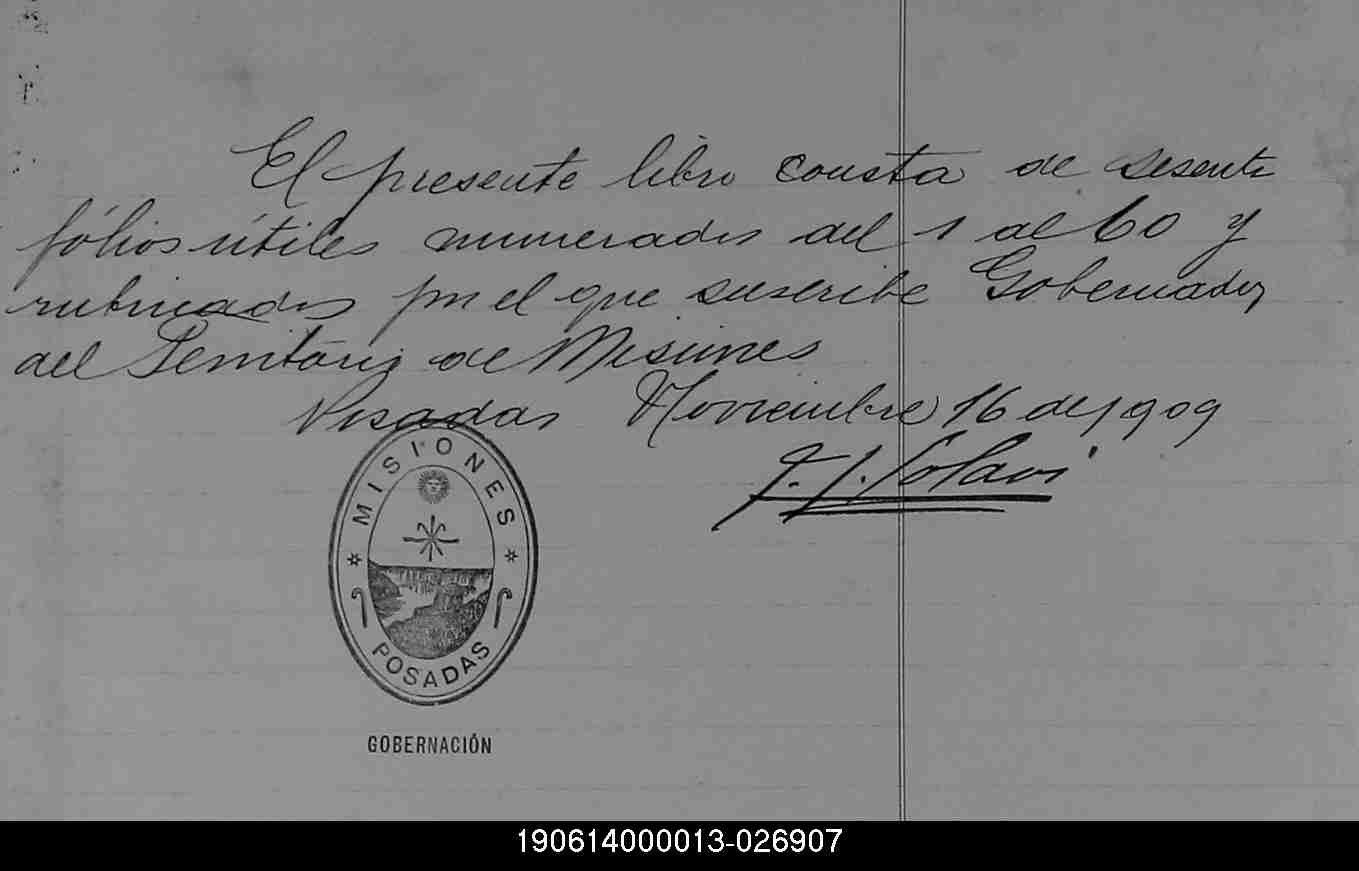 El presente libro consta de sesenta
fólios útiles numerados del 1 al 60 y
rubricados por el que suscribe Gobernador
del Território de Misiones
Posadas Noviembre 16 de 1909
J. J. Lanusse
MISIONES
POSADAS
GOBERNACIÓN
190614000013-026907